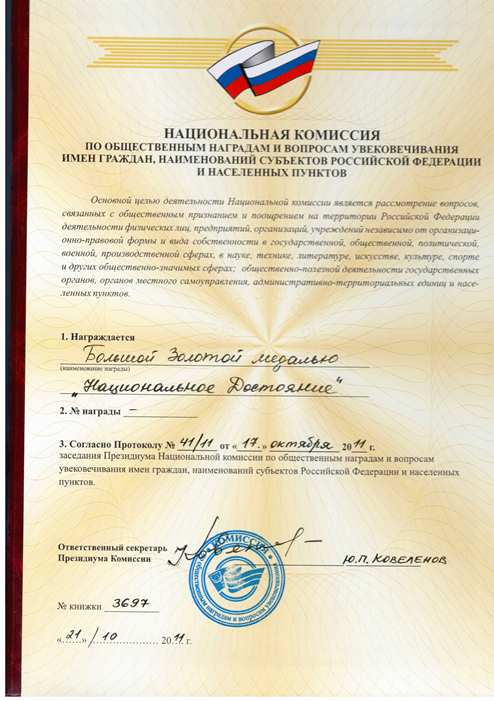 НАЦИОНАЛЬНАЯ КОМИССИЯ
ПО ОБЩЕСТВЕННЫМ НАГРАДАМ И ВОПРОСАМ УВЕКОВЕЧИВАНИЯ
ИМЕН ГРАЖДАН, НАИМЕНОВАНИЙ СУБЪЕКТОВ РОССИЙСКОЙ ФЕДЕРАЦИИ
И НАСЕЛЕННЫХ ПУНКТОВ
Основной целью деятельности Национальной комиссии является рассмотрение вопросов,
связанных с общественным признанием и поощрением на территории Российской Федерации
деятельности физических лиц, предприятий, организаций, учреждений независимо от организаци-
онно-правовой формы и вида собственности в государственной, общественной, политической,
военной, производственной сферах, в науке, технике, литературе, искусстве, культуре, спорте
и других общественно-значимых сферах; общественно-полезной деятельности государственных
органов, органов местного самоуправления, административно-территориальных единиц и насе-
ленных пунктов.
1. Награждается
Большой Золотой медалью
(наименование награды)
„Национальное Достояние“
2. № награды –
3. Согласно Протоколу № 41/11 от «17.» октября 2011 г.
заседания Президиума Национальной комиссии по общественным наградам и вопросам
увековечивания имен граждан, наименований субъектов Российской Федерации и населенных
пунктов.
Ответственный секретарь
Президиума Комиссии
Ю.П. КОВЕЛЕНОВ
№ книжки 3697
«21» /10 2011 г.